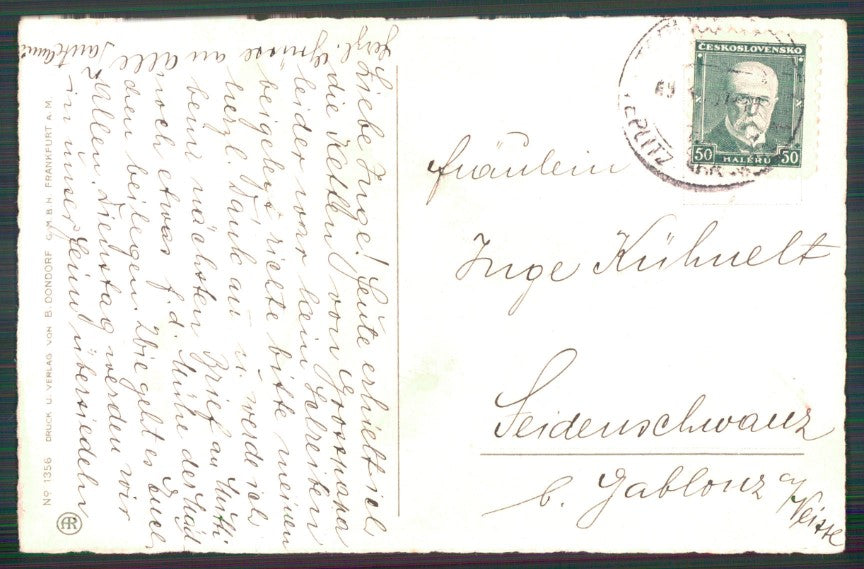 Liebe Inge! Heute erhielt ich
die Ketten von Grosspapa
leider war kein Schreiben
beigelegt richte bitte meinen
herzl. Dank an u. werde ich
beim nächsten Brief an Mutti
noch etwas f. d. Mühe der
den beilegen. Wie geht es Euch
Allen. Dienstag werden wir
in unser Heim übersiedeln
Herzl. Grüsse an alle
Fräulein
Inge Kühnelt
Seidenschwanz
b. Gablonz a/Neisse
ČESKOSLOVENSKO
50 HALÉŘŮ 50
No 1356 DRUCK U. VERLAG VON B. DONDORF G.M.B.H. FRANKFURT A.M.